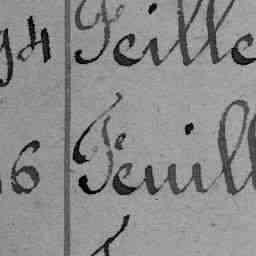 94 Teille
6 Feuill